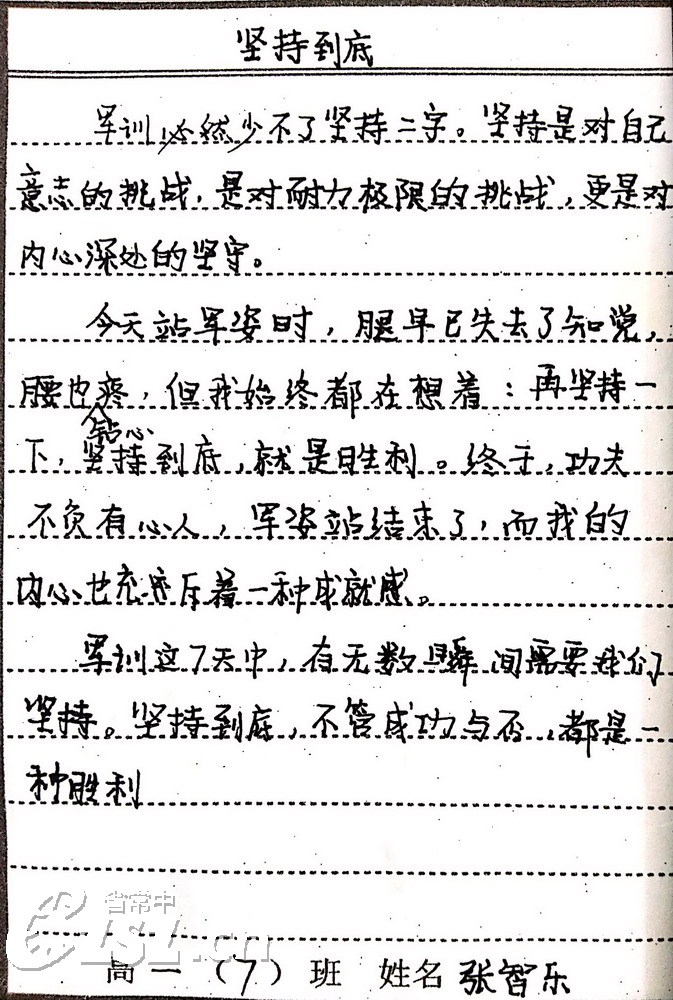 坚持到底
军训必然少不了坚持二字。坚持是对自己
意志的挑战，是对耐力极限的挑战，更是对
内心深处的坚守。
今天站军姿时，腿早已失去了知觉，
腰也疼，但我始终都在想着：再坚持一
钻心
下，坚持到底，就是胜利。终于，功夫
不负有心人，军姿站结束了，而我的
内心也充斥着一种成就感。
军训这7天中，有无数瞬间需要我们
坚持。坚持到底，不管成功与否，都是一
种胜利
省常中
CSLSZ.cn
高一（7）班 姓名 张智乐